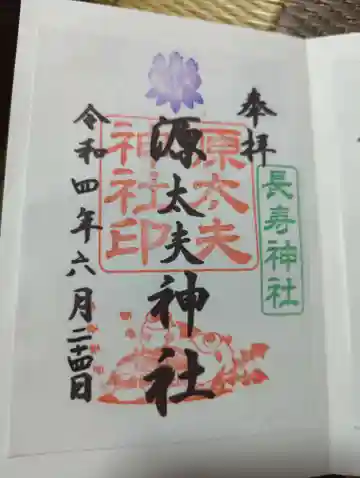 奉拝
長寿神社
源太夫神社
源太夫
神社印
令和四年六月二十四日